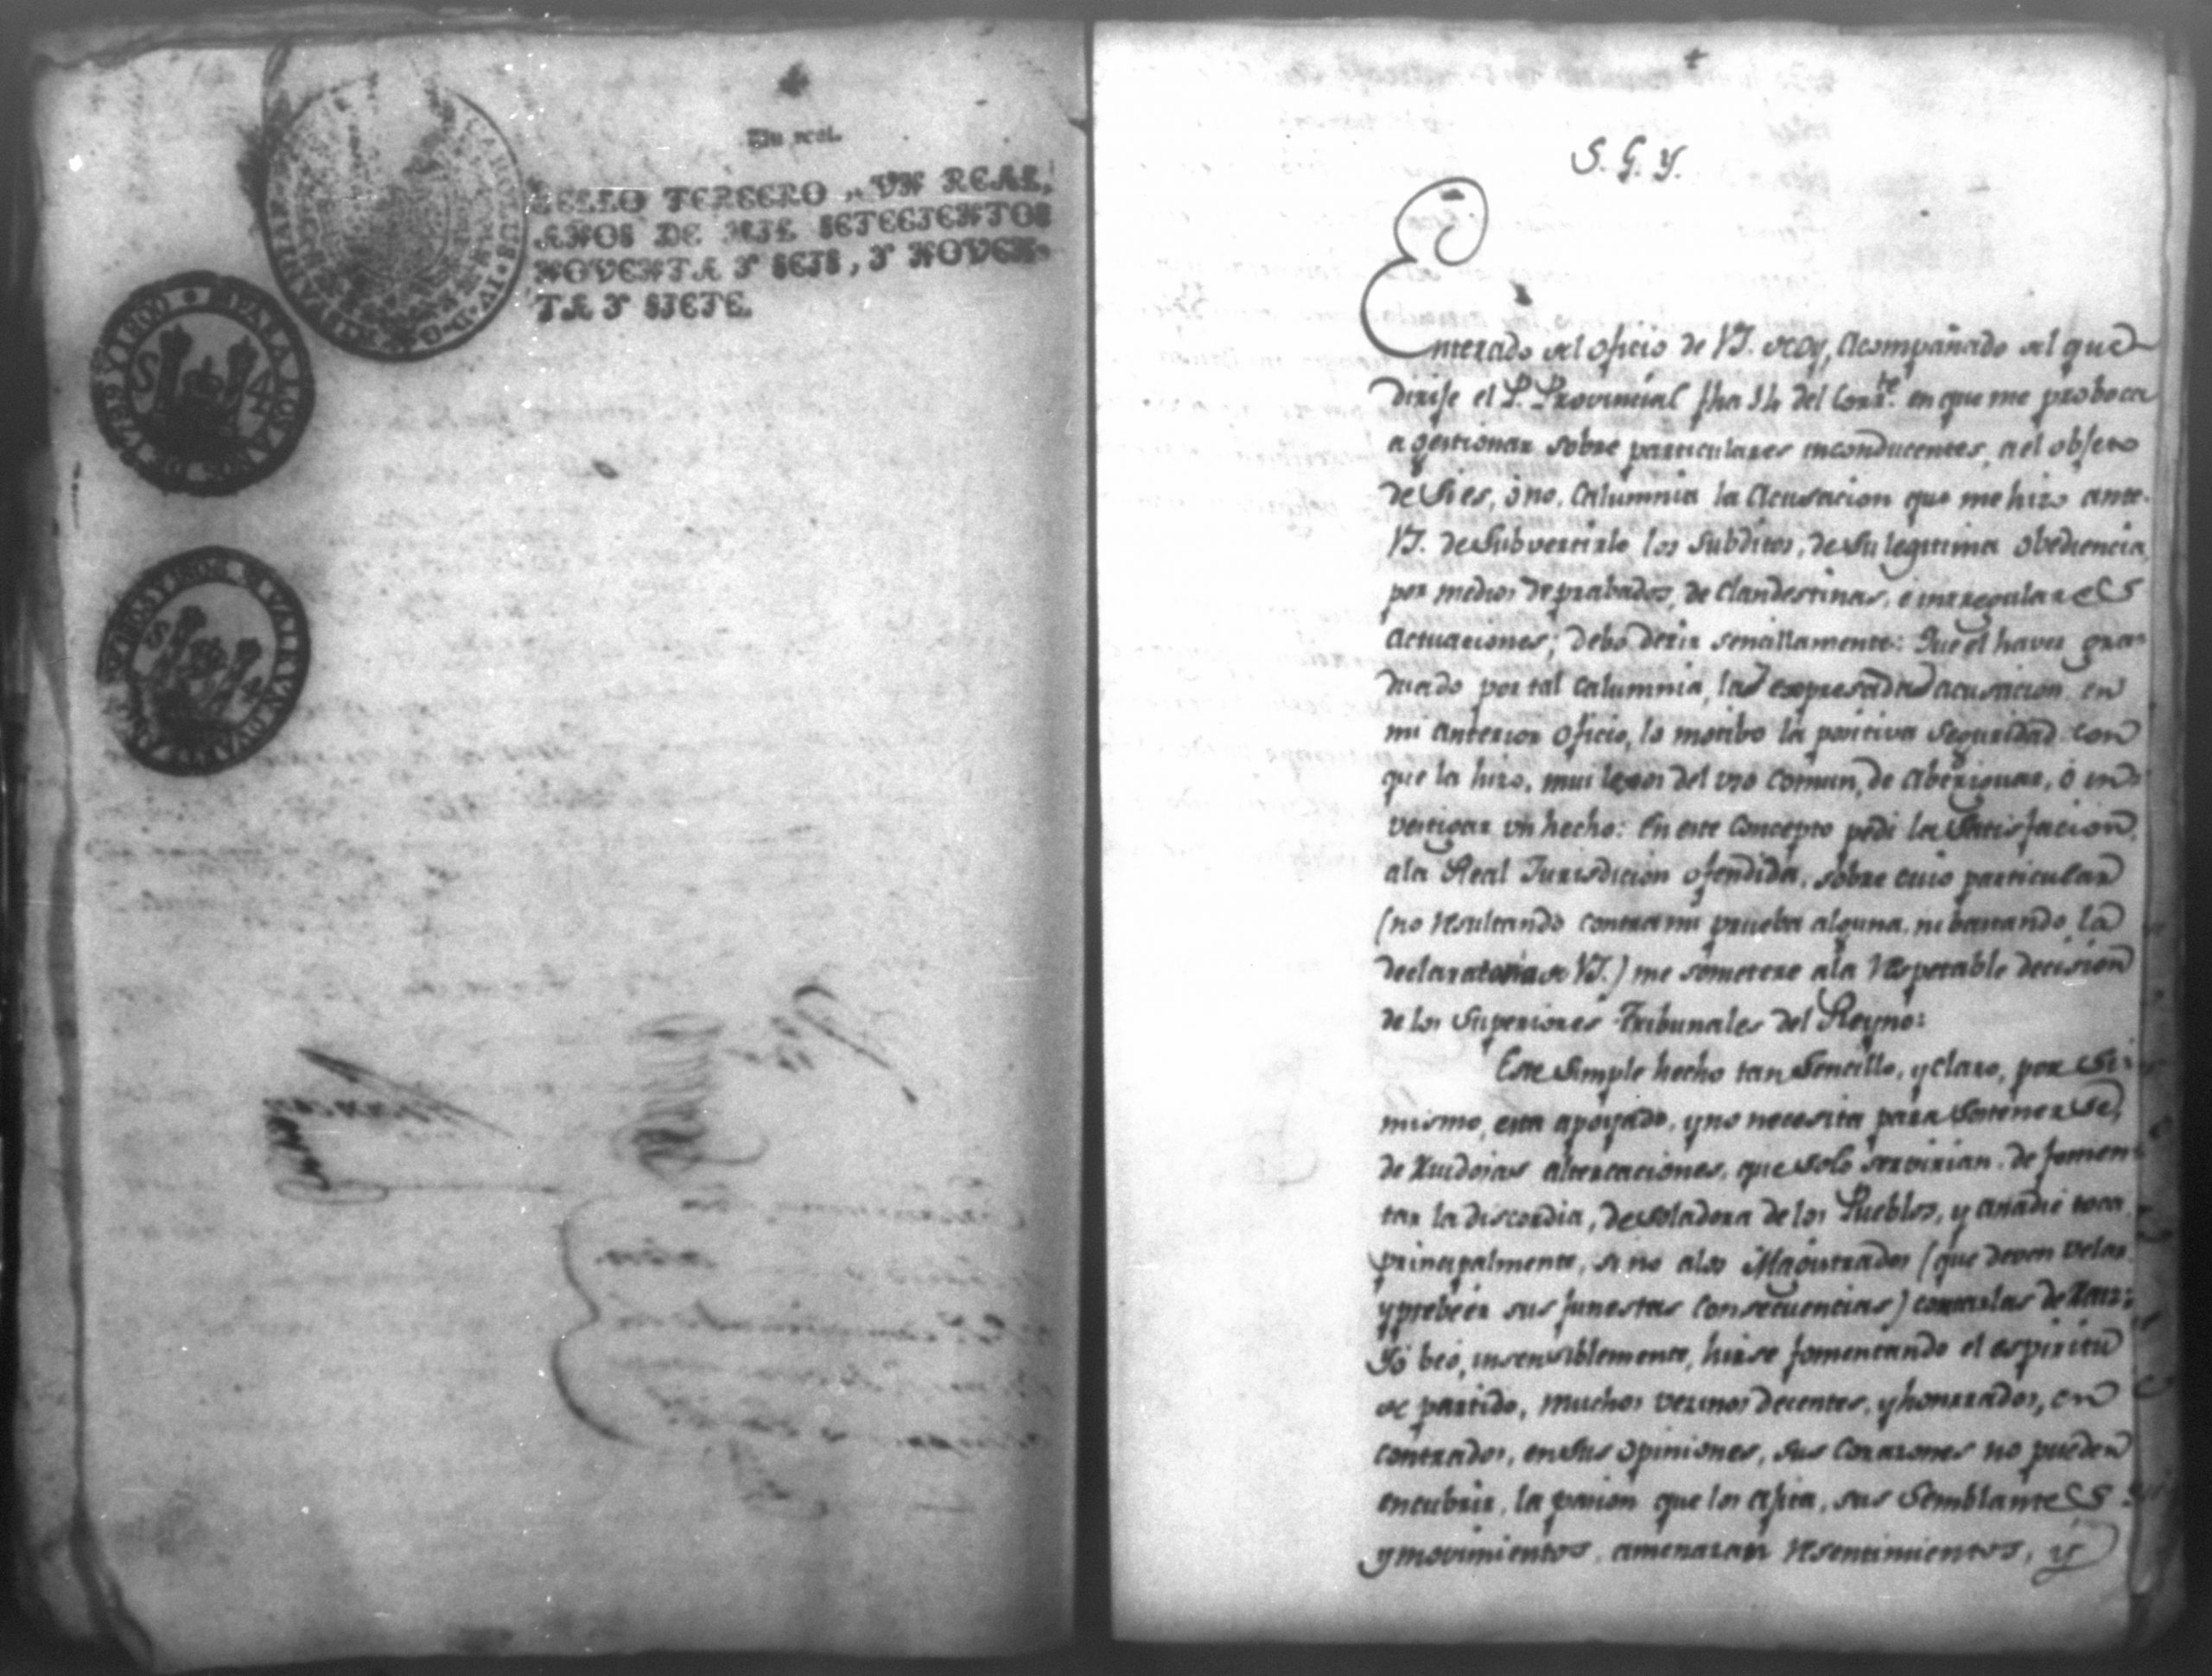 Un real.
SELLO TERCERO, UN REAL,
AÑOS DE MIL SETECIENTOS
NOVENTA Y SEIS, Y NOVEN-
TA Y SIETE.
CAROLUS IV D. G.
PARA LOS AÑOS DE
S 4
S. G. Y.
Enterado del oficio de VS. de oy, acompañado al que
dirije el P. Provincial fha 14 del Corrte. en que me proboca
a gestionar sobre particulares inconducentes, a el objeto
de Si es, ò no, Calumnia la Acusacion que me hizo ante
VS. de Subvertirle los Subditos, de Su legitima obediencia
por medios deprabados, de Clandestinas, è irregulares
Actuaciones; debo decir sencillamente: Que el haver gra-
duado por tal calumnia, la expresada acusacion en
mi anterior oficio, lo motibo la positiva seguridad con
que la hizo, mui lexos del uso comun, de aberiguar, ò in-
vestigar un hecho: En este Concepto pedi la Satisfacion
a la Real Jurisdicion ofendida, sobre cuio particular
(no resultando contra mi prueba alguna, ni bastando la
declaratoria de VS.) me sometere a la respetable decision
de los Superiores Tribunales del Reyno:
Este Simple hecho tan Sencillo, y claro, por Si
mismo, esta apoyado, y no necesita para Sostenerse,
de Ruidosas altercaciones, que solo servirian de fomen-
tar la discordia, desoladora de los Pueblos, y a nadie toca
principalmente, si no a los Magistrados (que deven velar
y prebeer sus funestas consecuencias) cortarlas de Raiz:
Yó beo, insensiblemente, hirse fomentando el espiritu
de partido, muchos vezinos decentes, y honrrados, en
contrados, en Sus opiniones, Sus Corazones no pueden
encubrir, la pasion que los agita, sus Semblantes
y movimientos, amenazan resentimientos, y